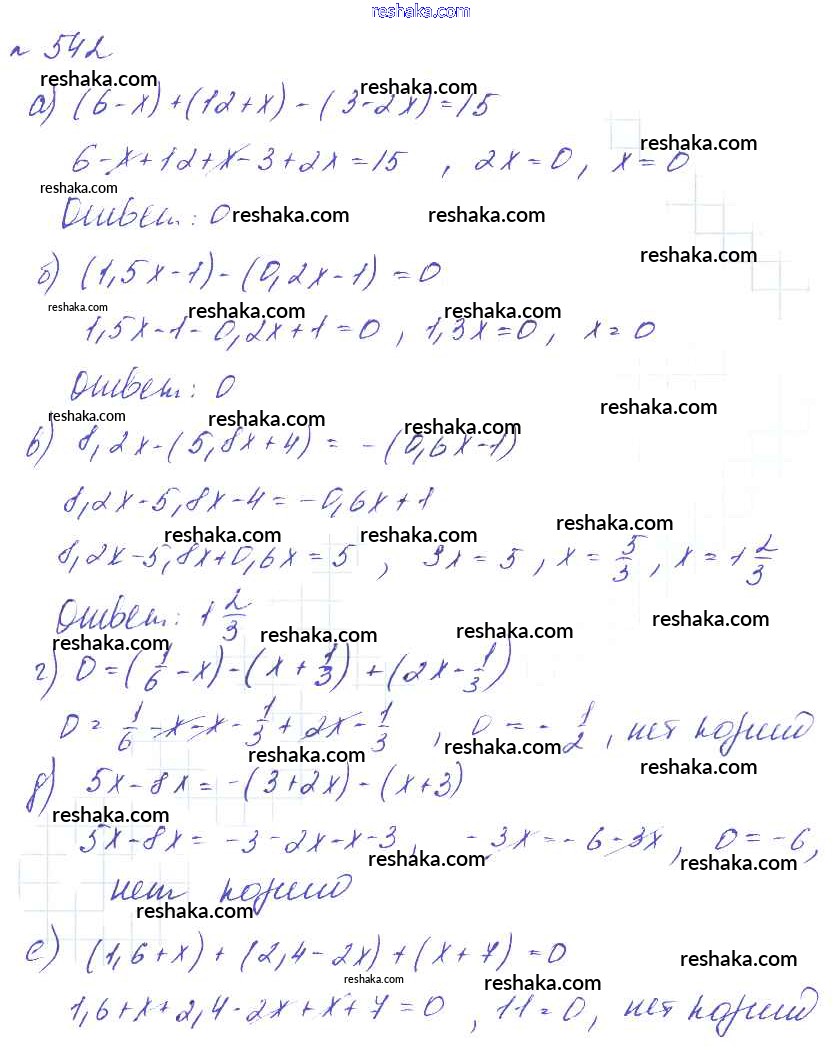 reshaka.com
№ 542
reshaka.com reshaka.com
а) (6-x)+(12+x)-(3-2x)=15
reshaka.com
6-x+12+x-3+2x=15, 2x=0, x=0
reshaka.com
Ответ: 0 reshaka.com reshaka.com
reshaka.com
б) (1,5x-1)-(0,2x-1)=0
reshaka.com reshaka.com reshaka.com
1,5x-1-0,2x+1=0, 1,3x=0, x=0
Ответ: 0
reshaka.com reshaka.com reshaka.com reshaka.com
в) 8,2x-(5,8x+4)=-(0,6x-1)
8,2x-5,8x-4=-0,6x+1
reshaka.com reshaka.com reshaka.com
8,2x-5,8x+0,6x=5, 3x=5, x=5/3, x=1 2/3
Ответ: 1 2/3
reshaka.com reshaka.com reshaka.com reshaka.com
г) 0=(1/6-x)-(x+1/3)+(2x-1/3)
0=1/6-x-x-1/3+2x-1/3, 0=-1/2, нет корней
reshaka.com reshaka.com reshaka.com
д) 5x-8x=-(3+2x)-(x+3)
reshaka.com
5x-8x=-3-2x-x-3, -3x=-6-3x, 0=-6,
reshaka.com reshaka.com
нет корней
reshaka.com
е) (1,6+x)+(2,4-2x)+(x+7)=0
reshaka.com reshaka.com reshaka.com
1,6+x+2,4-2x+x+7=0, 11=0, нет корней
reshaka.com